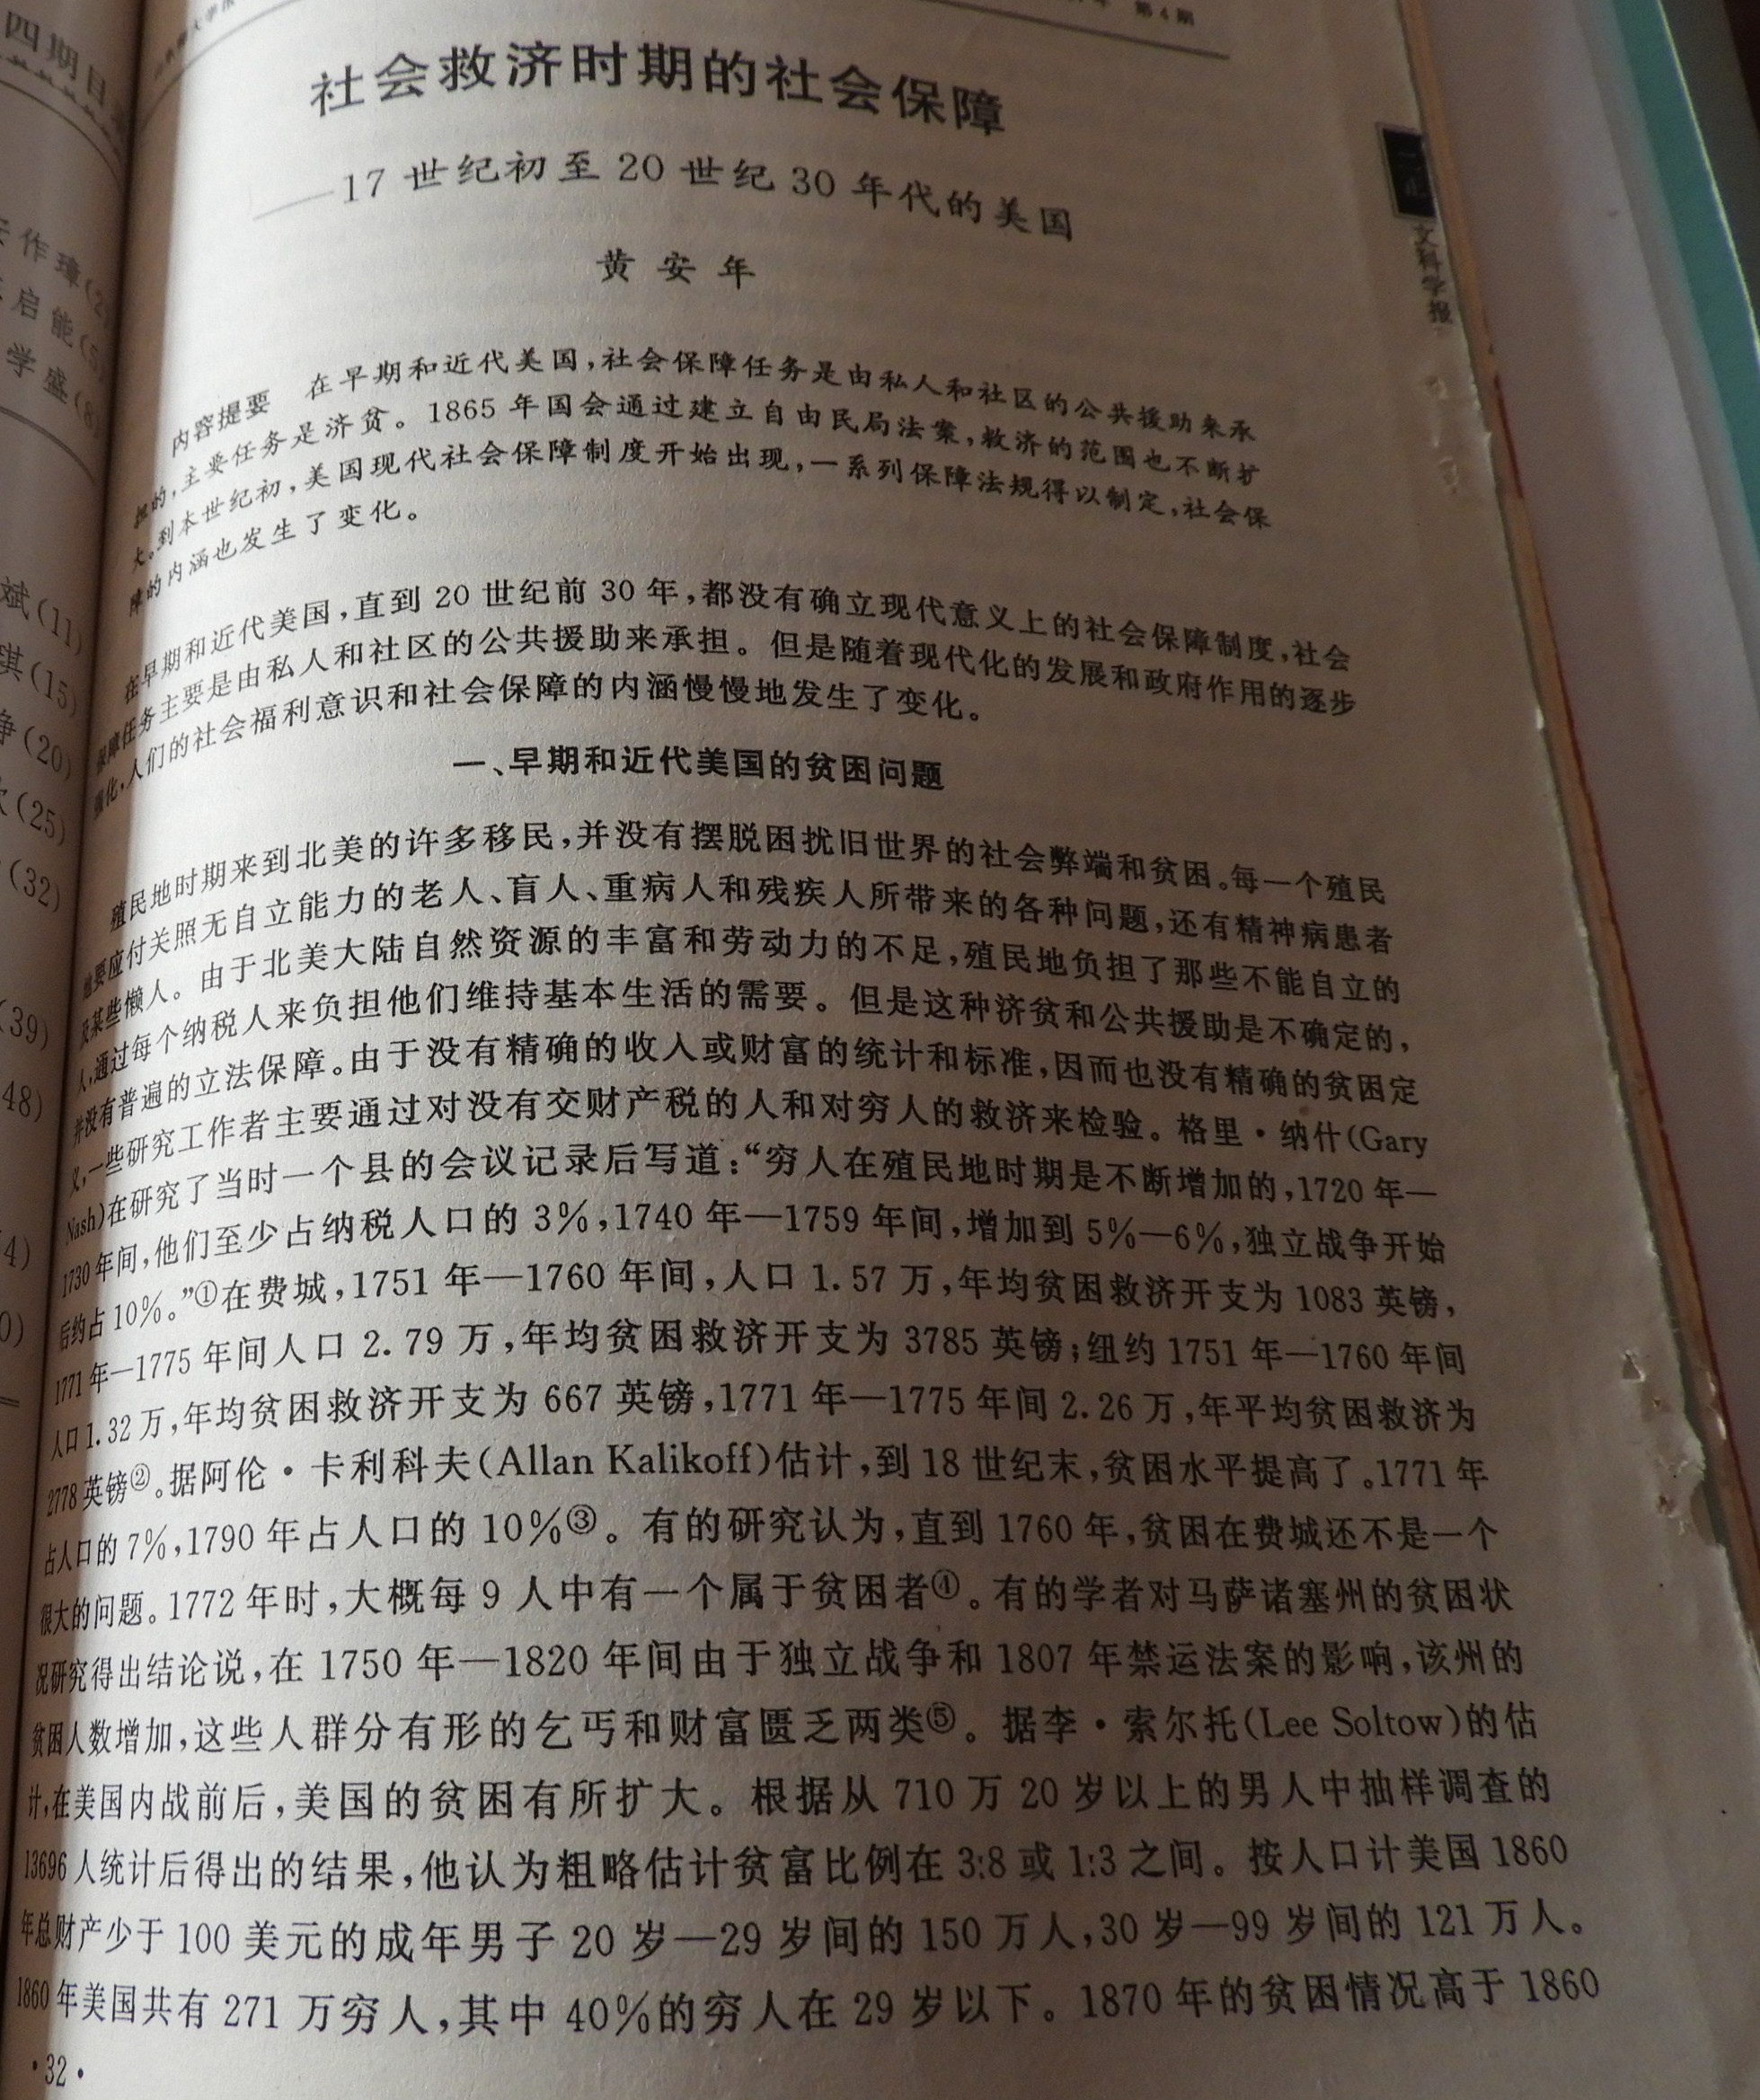 四期目
作璋(2
启能(5
学盛(8
斌(11)
琪(15)
(20)
(25)
(32)
(39)
48)
4)
0)
第4期
社会救济时期的社会保障
——17世纪初至20世纪30年代的美国
黄安年
内容提要 在早期和近代美国,社会保障任务是由私人和社区的公共援助来承
担的,主要任务是济贫。1865年国会通过建立自由民局法案,救济的范围也不断扩
大。到本世纪初,美国现代社会保障制度开始出现,一系列保障法规得以制定,社会保
障的内涵也发生了变化。
在早期和近代美国,直到20世纪前30年,都没有确立现代意义上的社会保障制度,社会
保障任务主要是由私人和社区的公共援助来承担。但是随着现代化的发展和政府作用的逐步
强化,人们的社会福利意识和社会保障的内涵慢慢地发生了变化。
一、早期和近代美国的贫困问题
殖民地时期来到北美的许多移民,并没有摆脱困扰旧世界的社会弊端和贫困。每一个殖民
地要应付关照无自立能力的老人、盲人、重病人和残疾人所带来的各种问题,还有精神病患者
及某些懒人。由于北美大陆自然资源的丰富和劳动力的不足,殖民地负担了那些不能自立的
人,通过每个纳税人来负担他们维持基本生活的需要。但是这种济贫和公共援助是不确定的,
并没有普遍的立法保障。由于没有精确的收人或财富的统计和标准,因而也没有精确的贫困定
义,一些研究工作者主要通过对没有交财产税的人和对穷人的救济来检验。格里·纳什(Gary
Nash)在研究了当时一个县的会议记录后写道:“穷人在殖民地时期是不断增加的,1720年—
1730年间,他们至少占纳税人口的3%,1740年—1759年间,增加到5%—6%,独立战争开始
后约占10%。”①在费城,1751年—1760年间,人口1.57万,年均贫困救济开支为1083英镑,
1771年—1775年间人口2.79万,年均贫困救济开支为3785英镑;纽约1751年—1760年间
人口1.32万,年均贫困救济开支为667英镑,1771年—1775年间2.26万,年平均贫困救济为
2778英镑②。据阿伦·卡利科夫(Allan Kalikoff)估计,到18世纪末,贫困水平提高了。1771年
占人口的7%,1790年占人口的10%③。有的研究认为,直到1760年,贫困在费城还不是一个
很大的问题。1772年时,大概每9人中有一个属于贫困者④。有的学者对马萨诸塞州的贫困状
况研究得出结论说,在1750年—1820年间由于独立战争和1807年禁运法案的影响,该州的
贫困人数增加,这些人群分有形的乞丐和财富匮乏两类⑤。据李·索尔托(Lee Soltow)的估
计,在美国内战前后,美国的贫困有所扩大。根据从710万20岁以上的男人中抽样调查的
13696人统计后得出的结果,他认为粗略估计贫富比例在3:8或1:3之间。按人口计美国1860
年总财产少于100美元的成年男子20岁—29岁间的150万人,30岁—99岁间的121万人。
1860年美国共有271万穷人,其中40%的穷人在29岁以下。1870年的贫困情况高于1860
·32·
文科学报